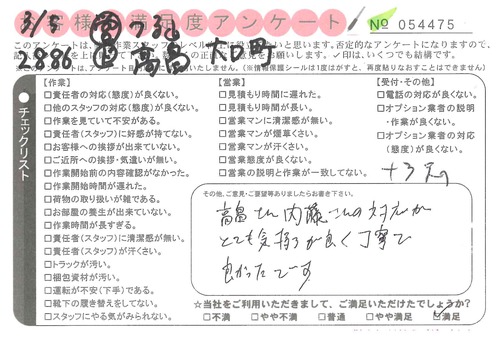 お客様満足度アンケート
No 054475
3/5
2886
高畠
営業
□見積もり時間に遅れた。
□見積もり時間が長い。
□営業マンに清潔感が無い。
□営業マンが煙草くさい。
□営業マンが汗くさい。
□営業態度が良くない。
□営業の説明と作業が一致してない。
【作業】
□責任者の対応(態度)が良くない。
□他のスタッフの対応(態度)が良くない。
□作業を見ていて不安がある。
□責任者(スタッフ)に好感が持てない。
□お客様への挨拶が出来ていない。
□ご近所への挨拶・気遣いが無い。
□作業開始前の内容確認がなかった。
□作業開始時間が遅れた。
□荷物の取り扱いが雑である。
□お部屋の養生が出来ていない。
□作業時間が長すぎる。
□責任者(スタッフ)に清潔感が無い。
□責任者(スタッフ)が汗くさい。
□トラックが汚い。
□梱包資材が汚い。
□運転が不安(下手)である。
□靴下の履き替えをしてない。
□スタッフにやる気がみられない。
【受付・その他】
□電話の対応が良くない。
□オプション業者の説明
・作業が良くない。
□オプション業者の対応
(態度)が良くない。
チェックリスト
その他、ご意見・ご要望等ありましたらお書き下さい。
高畠さん 内藤さんの対応が
とても気持ちが良く丁寧で
良かったです
☆当社をご利用いただきまして、ご満足いただけたでしょうか?
□不満 □やや不満 □普通 □やや満足 □満足